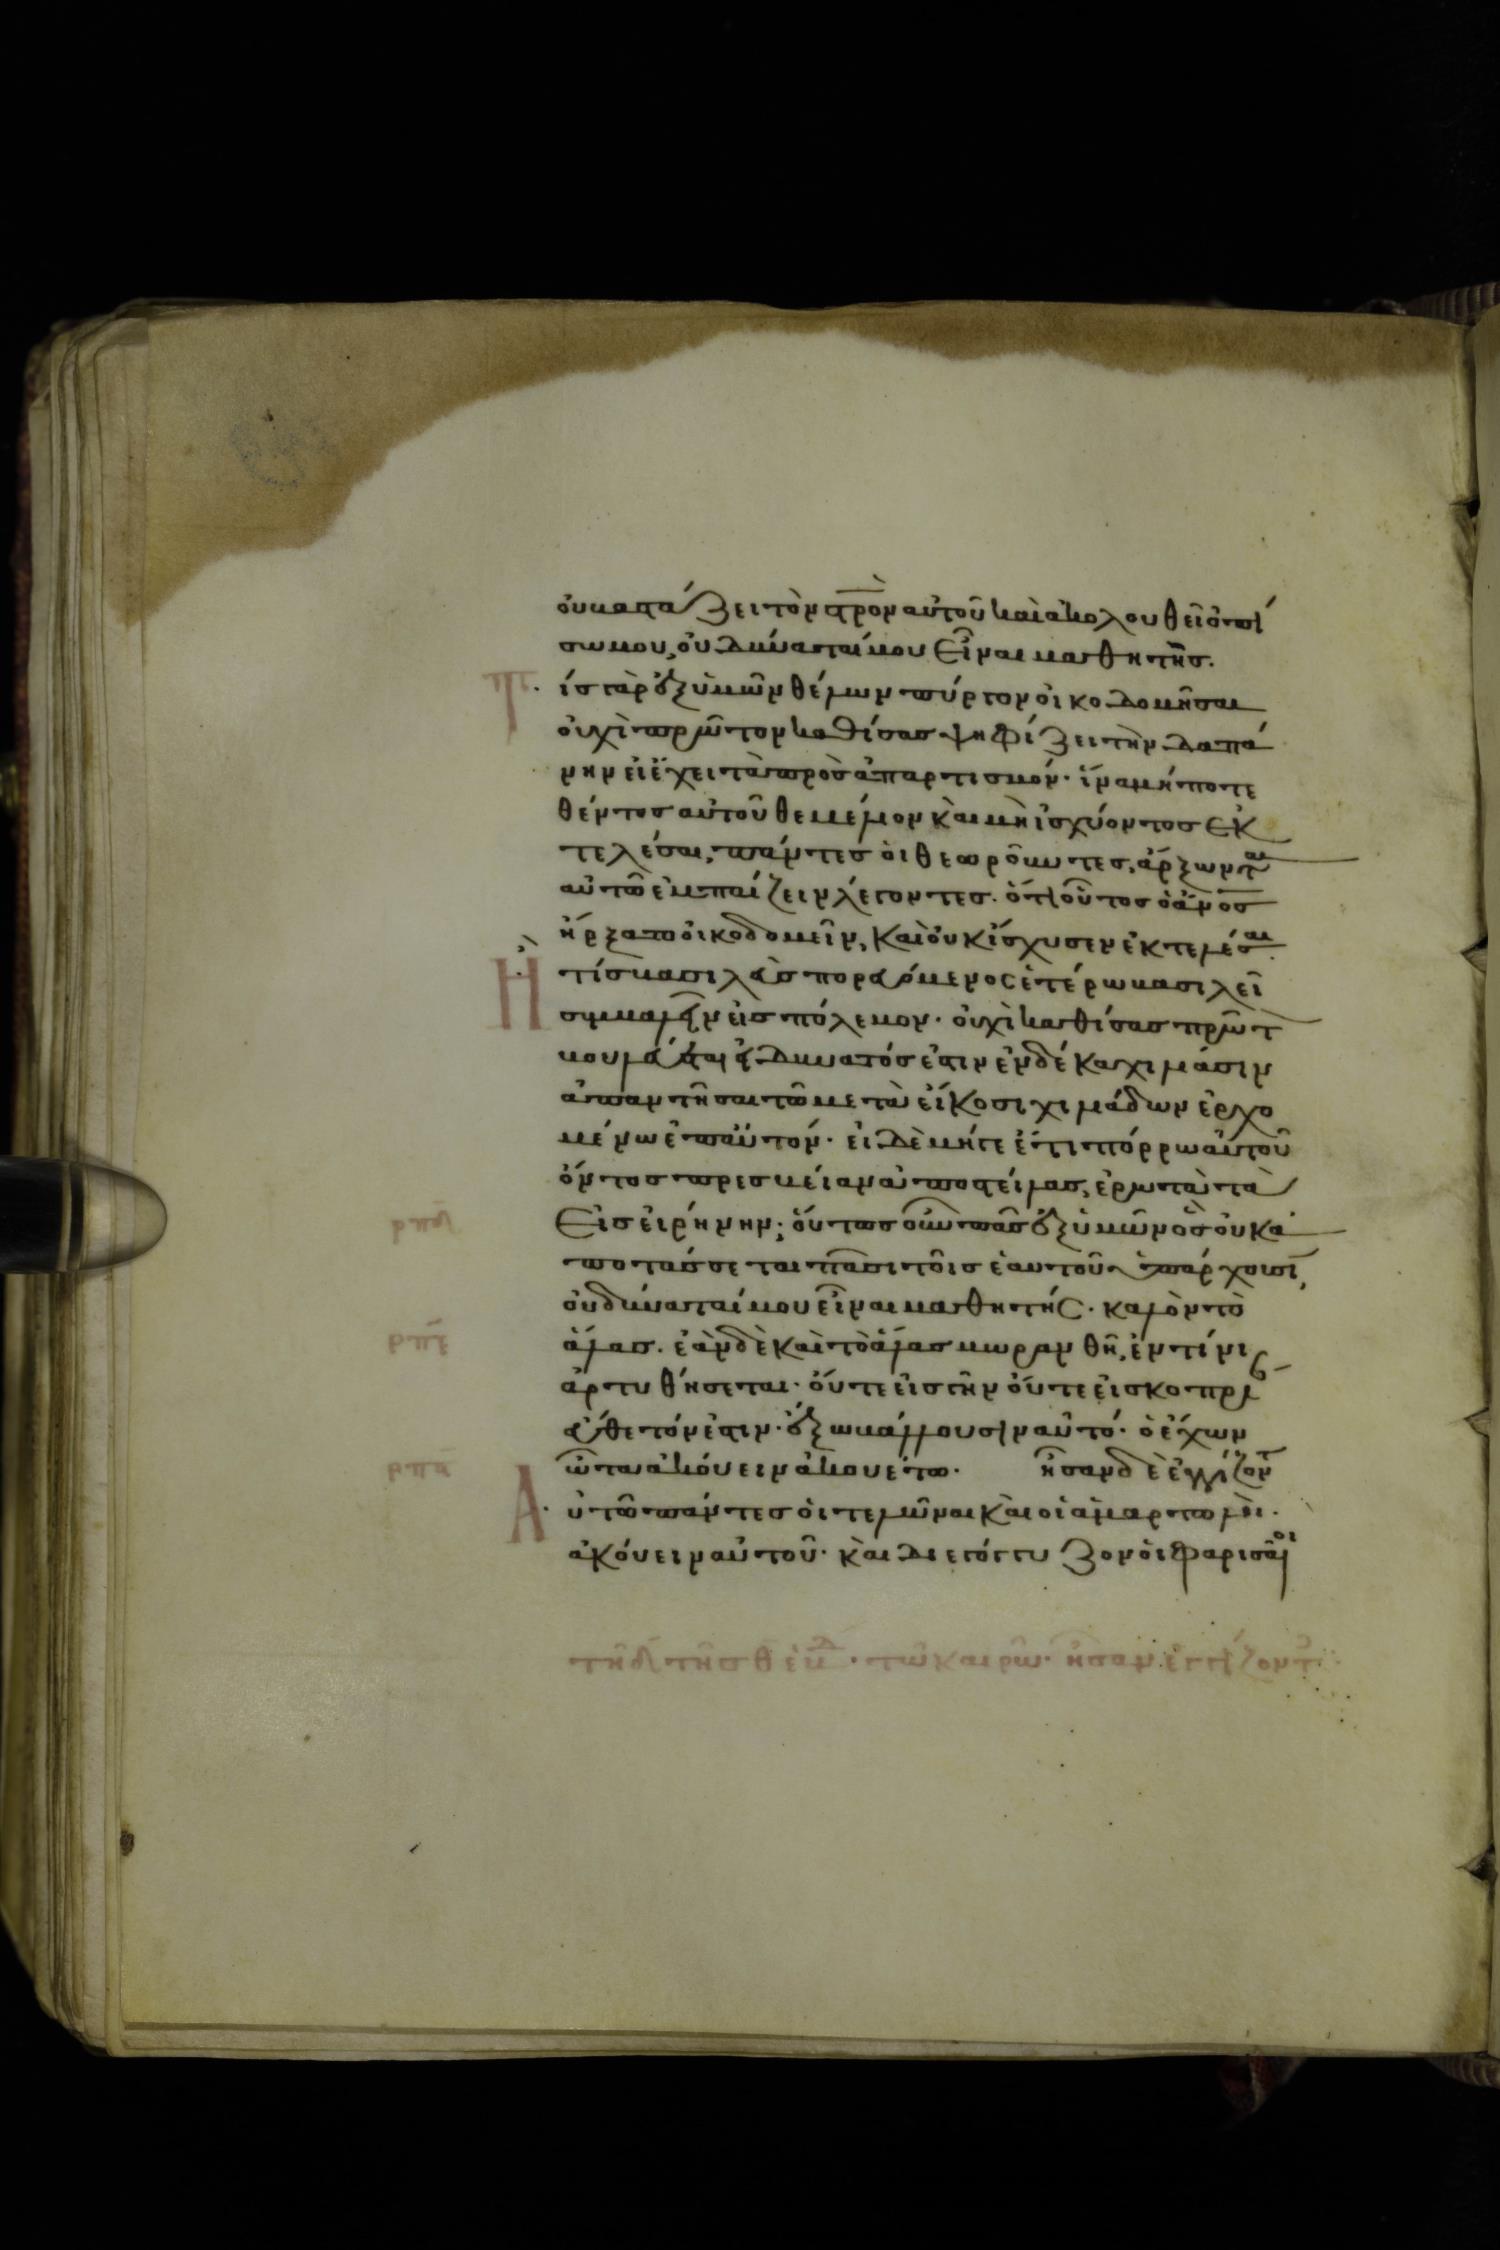 ὀυ βαστάζει τὸν στρὸν αὐτοῦ καὶ ἀκολουθεῖ ὀπί
σω μου, ὀυ δύναται μου εἶναι μαθητὴς.
Τίς γὰρ ἐξ ὑμῶν θέλων πύργον οἰκοδομῆσαι
ὀυχὶ πρῶτον καθίσας ψηφίζει τὴν δαπά
νην εἰ ἔχει τὰ πρὸς ἀπαρτισμόν· ἵνα μήποτε
θέντος αὐτοῦ θεμέλιον κὰι μὴ ἰσχύοντος ἐκ
τελέσαι, πάντες ὁι θεωροῦντες, ἄρξωνται
αὐτῶ ἐμπαίζειν λέγοντες. ὅτι οὗτος ὁ ἄνος
ἤρξατο ὀικοδομεῖν, καὶ ὀυκ ἴσχυσεν ἐκτελέσαι.
Ἢ τίς βασιλεὺς πορευόμενος ἑτέρω βασιλεῖ
συμβαλεῖν εἰς πόλεμον. ὀυχὶ καθίσας πρῶτ
βουλεύεται εἰ δυνατός ἐστιν ἐν δέκα χιλιάσιν
ἀπαντῆσαι τῶ μετὰ εἴκοσι χιλιάδων ἐρχο
μένω ἐπ αὐτόν. εἰ δὲ μήγε ἔτι πόρρω αὐτοῦ
ὄντος πρεσβείαν ἀποστείλας, ἐρωτᾶ τὰ
εἰς εἰρήνην; ὅυτως οὖν πᾶς ἐξ ὑμῶν ὃς ὀυκ ἀ
ποτάσσεται πᾶσι τοῖς ἑαυτοῦ ὑπάρχουσι,
ὀυ δύναται μου εἶναι μαθητής. καλὸν τὸ
ἅλας. ἐὰν δὲ καὶ τὸ ἅλας μωρανθῆ, ἐν τίνι
ἀρτυθήσεται. ὄυτε εἰς γῆν ὄυτε εἰς κοπρί
εὔθετόν ἐστιν. ἔξω βάλλουσιν αὐτό. ὁ ἔχων
ὦτα ἀκόυειν ἀκουέτω. ἦσαν δὲ ἐγγίζον
Αὐτῶ πάντες ὁι τελῶναι κὰι οἱ ἁμαρτωλὸι.
ἀκόυειν αὐτοῦ. κὰι διεγόγγυζον ὁι φαρισαῖοι
τῶ καιρῶ. ἦσαν ἐγγίζοντ